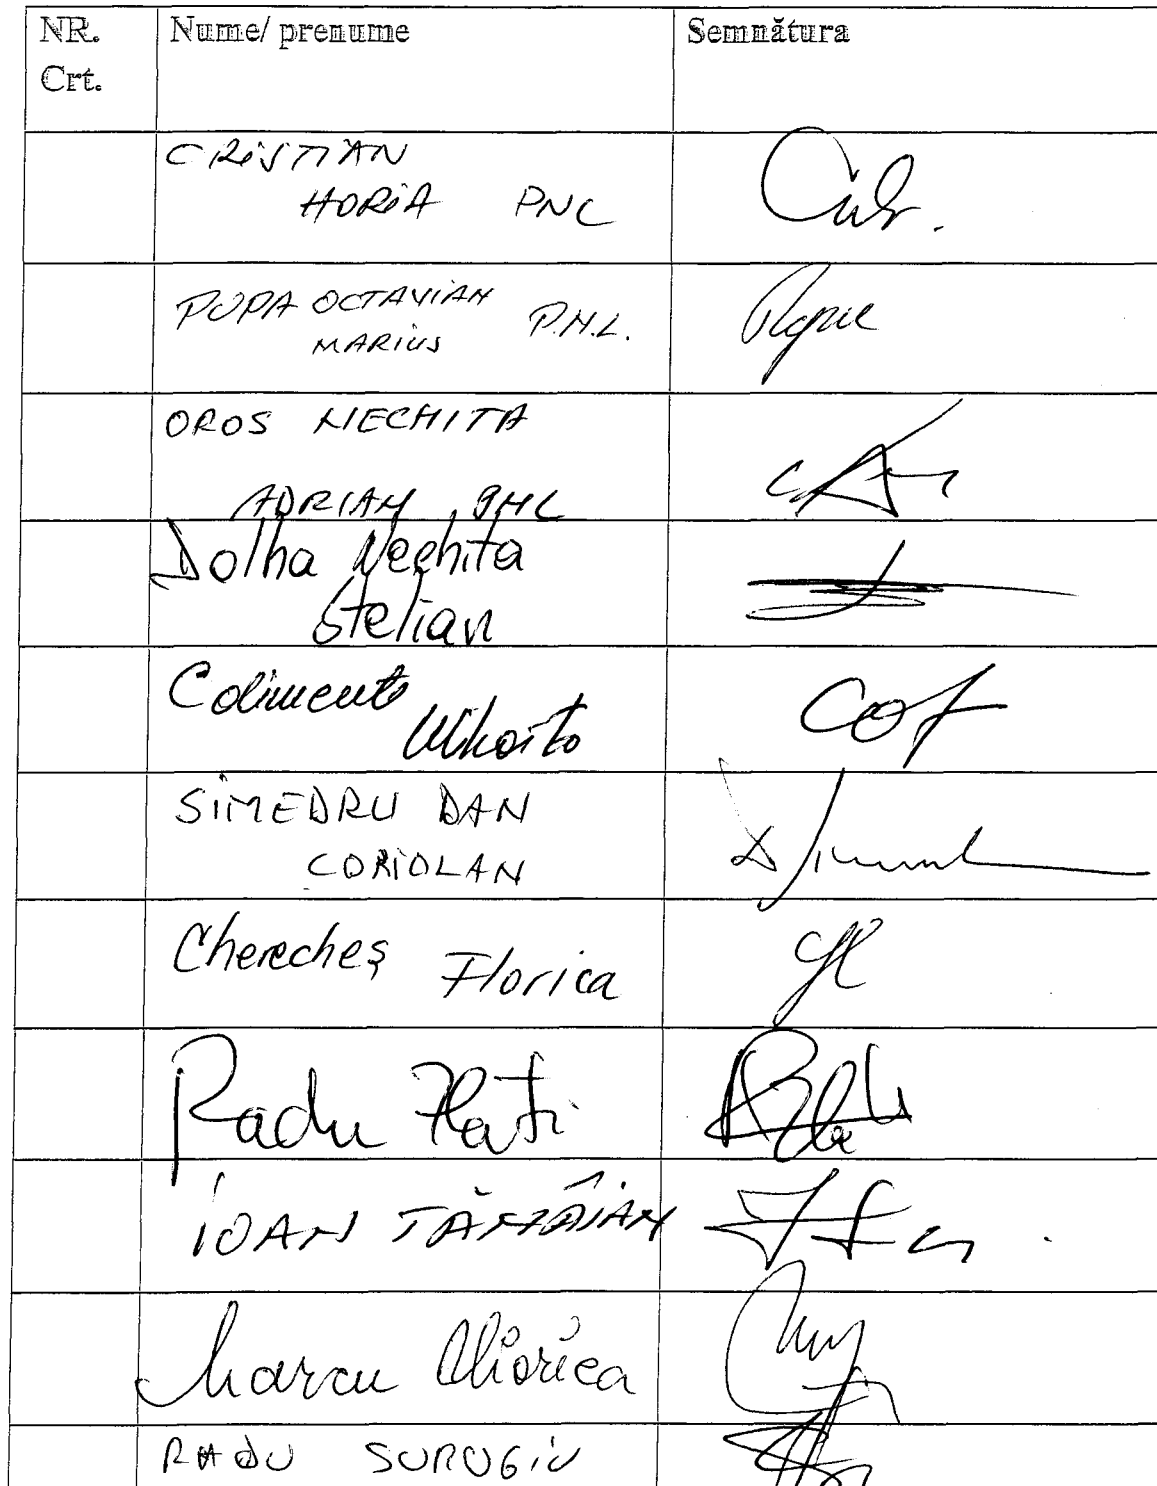 NR. Nume/ prenume Semnătura
Crt.
CRISTIAN
HORIA PNL
POPA OCTAVIAN P.N.L.
MARIUS
OROS NECHITA
ADRIAN PNL
Dolha Nechita
Stelian
Calimente
Mihăiță
SIMEDRU DAN
CORIOLAN
Cherecheș Florica
Radu Zlati
IOAN TĂMÂIAN
Marcu Viorica
RADU SURUGIU